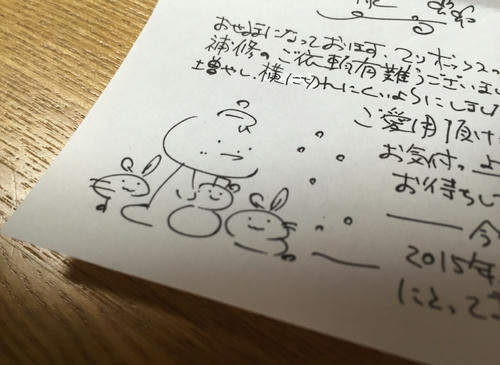 おせわになっております。マンボックスの
補修のご依頼有難うございまし
増やし、横にのんにくいようにしまし
ご愛用頂け
お気付。上
お待ちし
今
2015年
にとって